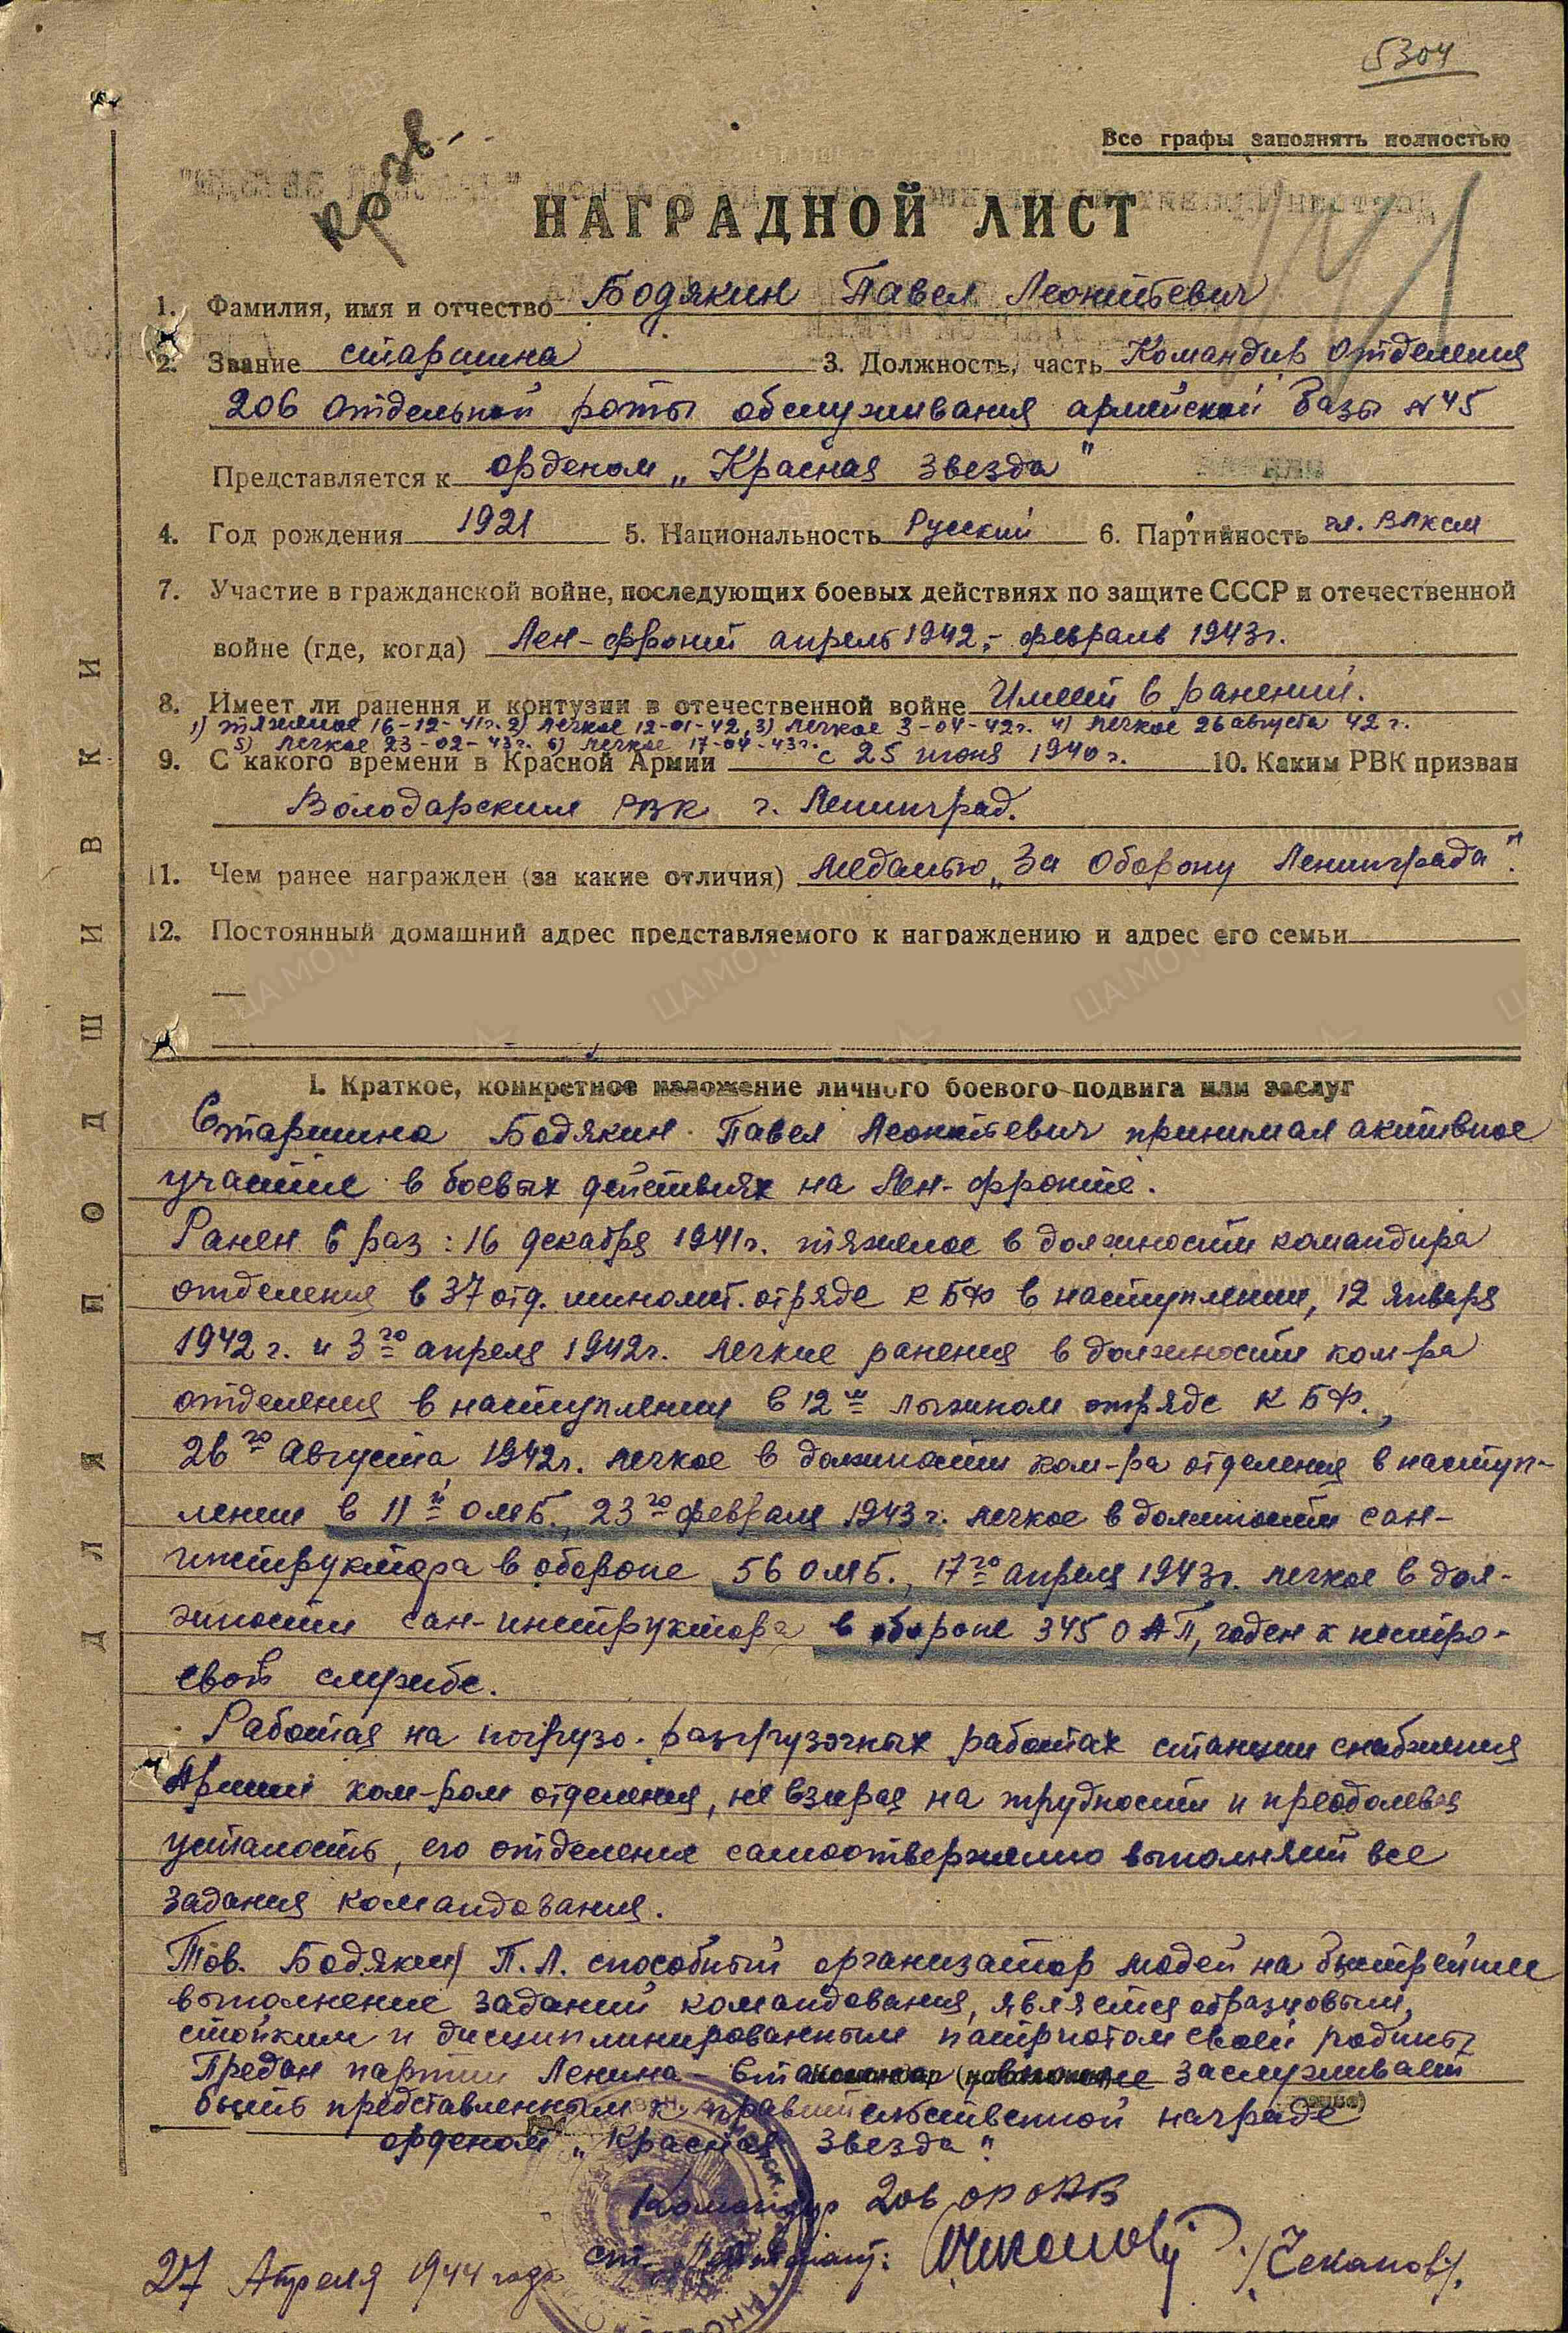 5304
Все графы заполнять полностью
НАГРАДНОЙ ЛИСТ
1. Фамилия, имя и отчество Бодякин Павел Леонтьевич
2. Звание старшина 3. Должность, часть Командир отделения
206 отдельной роты обслуживания армейской базы №45
Представляется к орденом „Красная Звезда"
4. Год рождения 1921 5. Национальность Русский 6. Партийность чл. ВЛКСМ
7. Участие в гражданской войне, последующих боевых действиях по защите СССР и отечественной
войне (где, когда) Лен-фронт апрель 1942,- февраль 1943г.
8. Имеет ли ранения и контузии в отечественной войне Имеет 6 ранений.
1) тяжелое 16-12-41г. 2) легкое 12-01-42, 3) легкое 3-04-42г. 4) легкое 26 августа 42 г.
5) легкое 23-02-43г. 6) легкое 17-04-43г.
9. С какого времени в Красной Армии с 25 июня 1940 г. 10. Каким РВК призван
Володарским РВК г. Ленинград.
11. Чем ранее награжден (за какие отличия) медалью „За Оборону Ленинграда".
12. Постоянный домашний адрес представляемого к награждению и адрес его семьи
ДЛЯ ПОДШИВКИ
I. Краткое, конкретное изложение личного боевого подвига или заслуг
Старшина Бодякин Павел Леонтьевич принимал активное
участие в боевых действиях на Лен-фронте.
Ранен 6 раз: 16 декабря 1941г. тяжелое в должности командира
отделения в 37 отд. миномет. отряде КБФ в наступлении, 12 января
1942 г. и 3го апреля 1942г. легкие ранения в должности ком-ра
отделения в наступлении в 12м лыжном отряде КБФ.,
26го Августа 1942г. легкое в должности ком-ра отделения в наступ-
лении в 11й ОМБ., 23го февраля 1943г. легкое в должности сан-
инструктора в обороне 56 ОМБ., 17го апреля 1943г. легкое в дол-
жности сан-инструктора в обороне 345 ОАП, годен к нестро-
евой службе.
Работая на погрузо-разгрузочных работах станции снабжения
Армии ком-ром отделения, не взирая на трудности и преодолевая
усталость, его отделение самоотверженно выполняет все
задания командования.
Тов. Бодякин П.Л. способный организатор людей на быстрейшее
выполнение заданий командования, является образцовым,
стойким и дисциплинированным патриотом своей родины
Предан партии Ленина - заслуживает
быть представленным к правительственной награде
орденом „Красная Звезда"
Командир 206 ОРОАБ
ст. лейтенант: /Чеканов/.
27 Апреля 1944 года